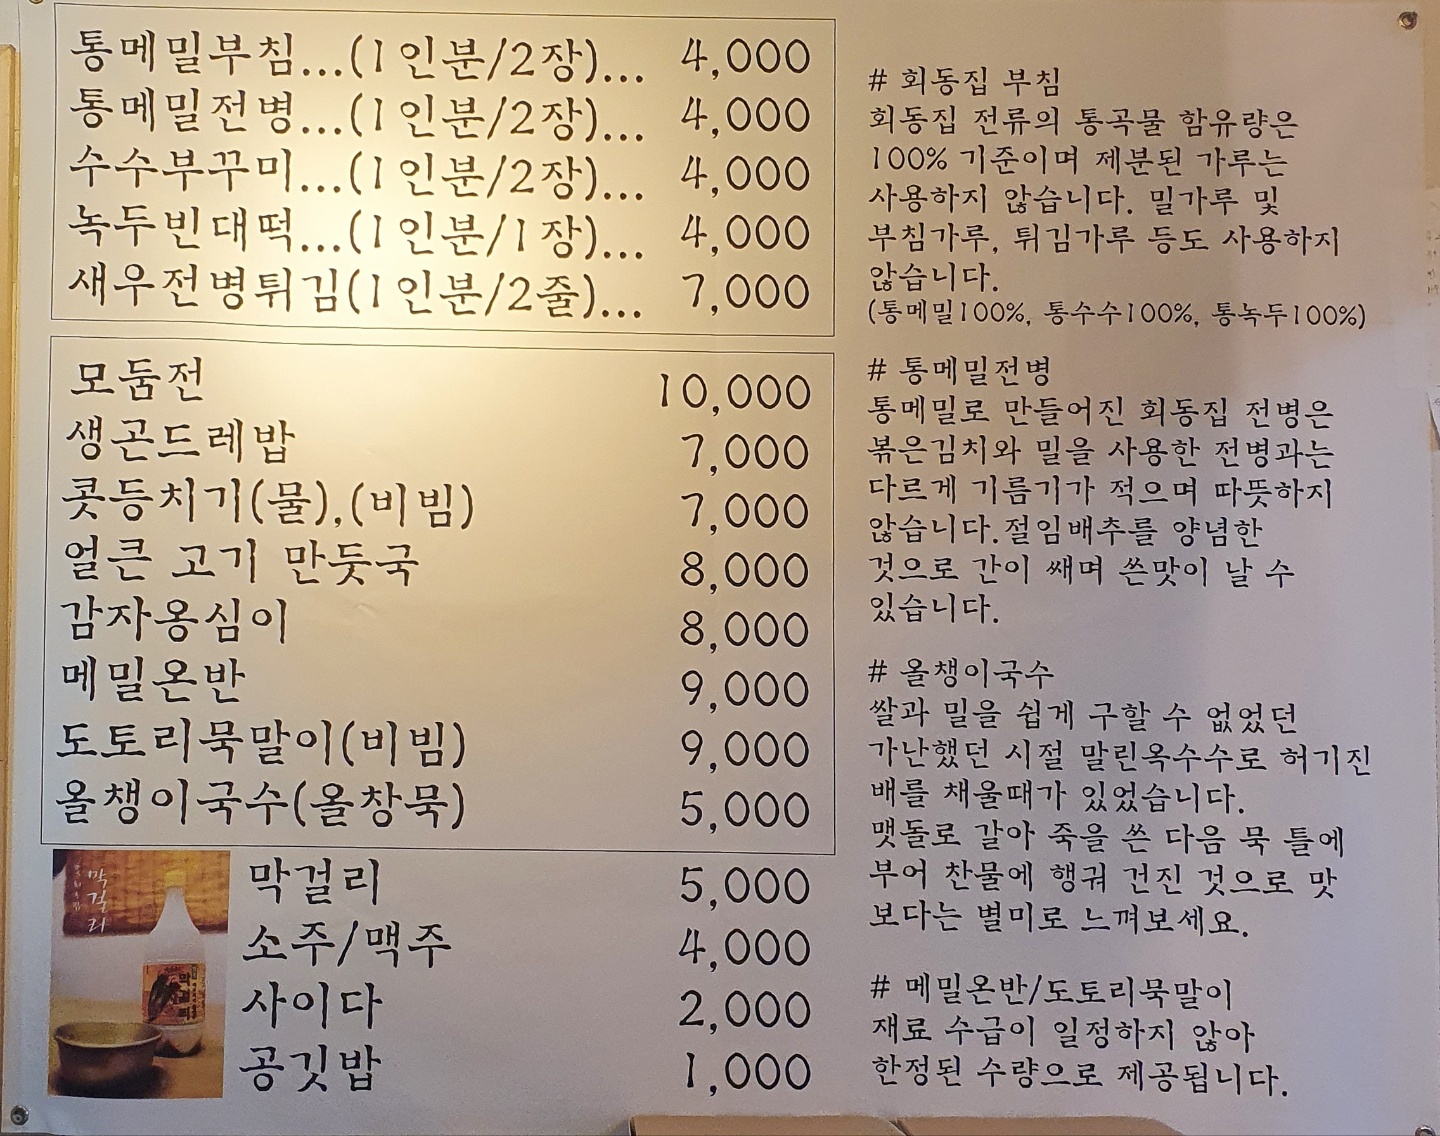 통메밀부침...(1인분/2장)... 4,000
통메밀전병...(1인분/2장)... 4,000
수수부꾸미...(1인분/2장)... 4,000
녹두빈대떡...(1인분/1장)... 4,000
새우전병튀김(1인분/2줄)... 7,000
모둠전 10,000
생곤드레밥 7,000
콧등치기(물),(비빔) 7,000
얼큰 고기 만둣국 8,000
감자옹심이 8,000
메밀온반 9,000
도토리묵말이(비빔) 9,000
올챙이국수(올창묵) 5,000
막걸리 5,000
소주/맥주 4,000
사이다 2,000
공깃밥 1,000
막걸리
# 회동집 부침
회동집 전류의 통곡물 함유량은
100% 기준이며 제분된 가루는
사용하지 않습니다. 밀가루 및
부침가루, 튀김가루 등도 사용하지
않습니다.
(통메밀100%, 통수수100%, 통녹두100%)
# 통메밀전병
통메밀로 만들어진 회동집 전병은
볶은김치와 밀을 사용한 전병과는
다르게 기름기가 적으며 따뜻하지
않습니다.절임배추를 양념한
것으로 간이 쌔며 쓴맛이 날 수
있습니다.
# 올챙이국수
쌀과 밀을 쉽게 구할 수 없었던
가난했던 시절 말린옥수수로 허기진
배를 채울때가 있었습니다.
맷돌로 갈아 죽을 쓴 다음 묵 틀에
부어 찬물에 행궈 건진 것으로 맛
보다는 별미로 느껴보세요.
# 메밀온반/도토리묵말이
재료 수급이 일정하지 않아
한정된 수량으로 제공됩니다.